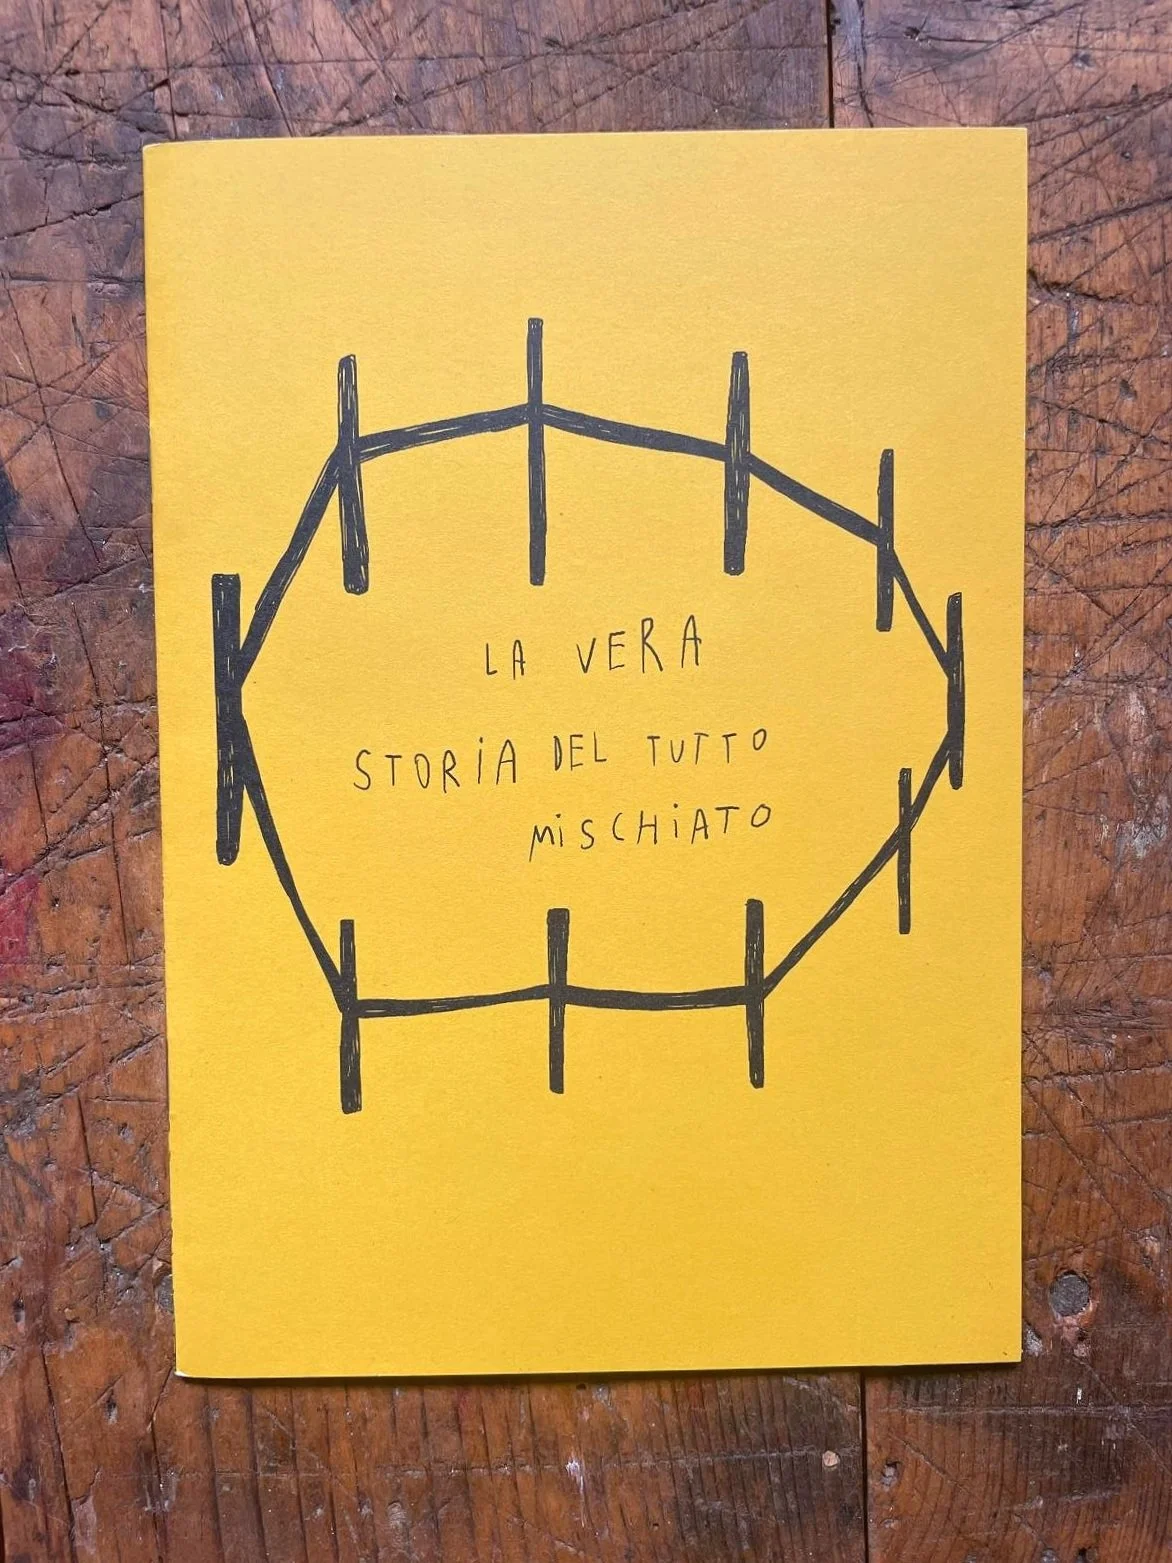 LA VERA
STORiA DEL TUTTO
MiSCHiATO